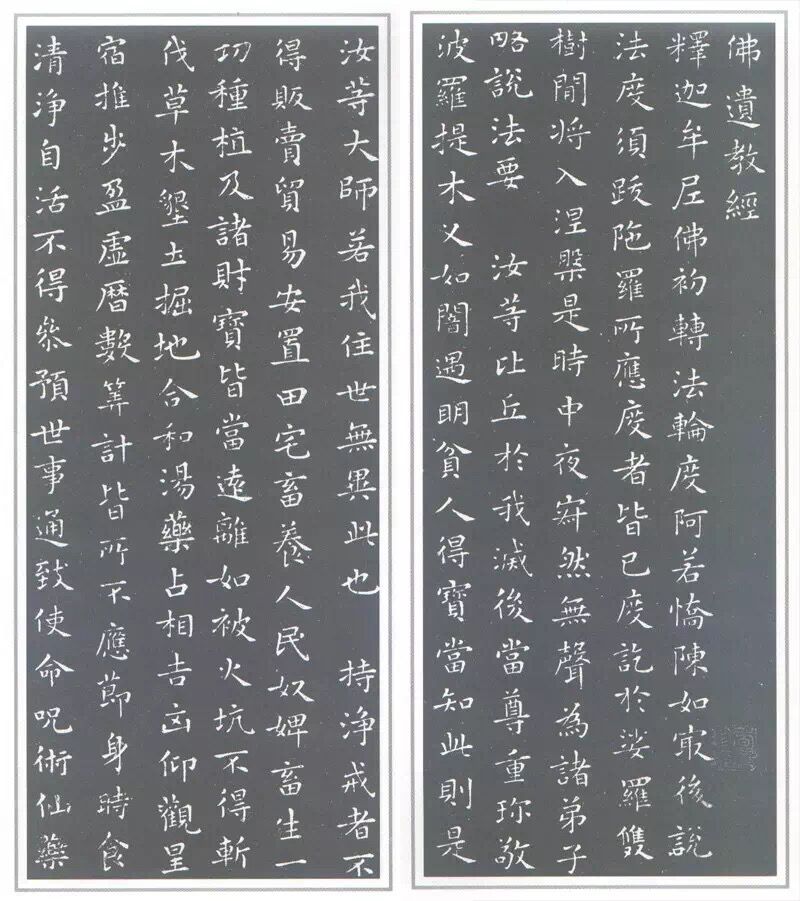 佛遺教經
釋迦牟尼佛初轉法輪度阿若憍陳如冣後說
法度須跋陁羅所應度者皆已度訖於娑羅雙
樹間將入涅槃是時中夜寂然無聲為諸弟子
略說法要 汝等比丘於我滅後當尊重珎敬
波羅提木叉如闇遇明貧人得寶當知此則是
汝等大師若我住世無異此也 持淨戒者不
得販賣貿易安置田宅畜養人民奴婢畜生一
切種植及諸財寶皆當遠離如被火坑不得斬
伐草木墾土掘地合和湯藥占相吉凶仰觀星
宿推步盈虛曆數筭計皆所不應節身時食
清淨自活不得叅預世事通致使命呪術仙藥